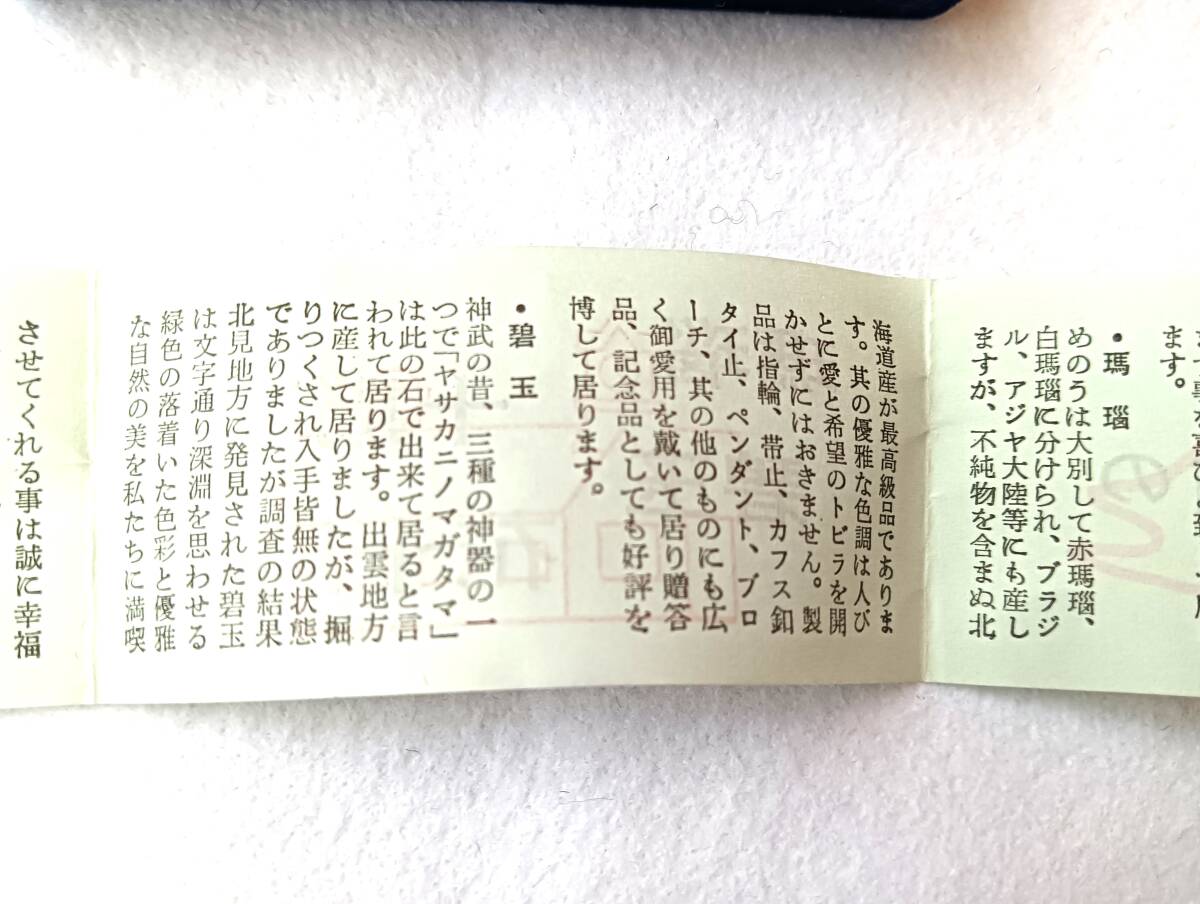 ます。
・瑪瑙
めのうは大別して赤瑪瑙、
白瑪瑙に分けられ、ブラジ
ル、アジヤ大陸等にも産し
ますが、不純物を含まぬ北
海道産が最高級品でありま
す。其の優雅な色調は人び
とに愛と希望のトビラを開
かせずにはおきません。製
品は指輪、帯止、カフス釦
タイ止、ペンダント、ブロ
ーチ、其の他のものにも広
く御愛用を戴いて居り贈答
品、記念品としても好評を
博して居ります。
・碧玉
神武の昔、三種の神器の一
つで「ヤサカニノマガタマ」
は此の石で出来て居ると言
われて居ります。出雲地方
に産して居りましたが、掘
りつくされ入手皆無の状態
でありましたが調査の結果
北見地方に発見された碧玉
は文字通り深淵を思わせる
緑色の落着いた色彩と優雅
な自然の美を私たちに満喫
させてくれる事は誠に幸福